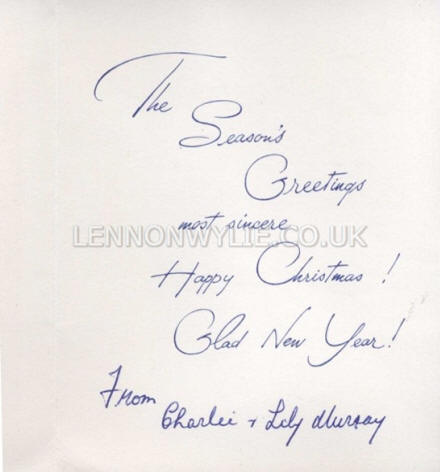 The
Season's
Greetings
most sincere
LENNONWYLIE.CO.UK
Happy Christmas !
Glad New Year!
From
Charlie + Lily Murray